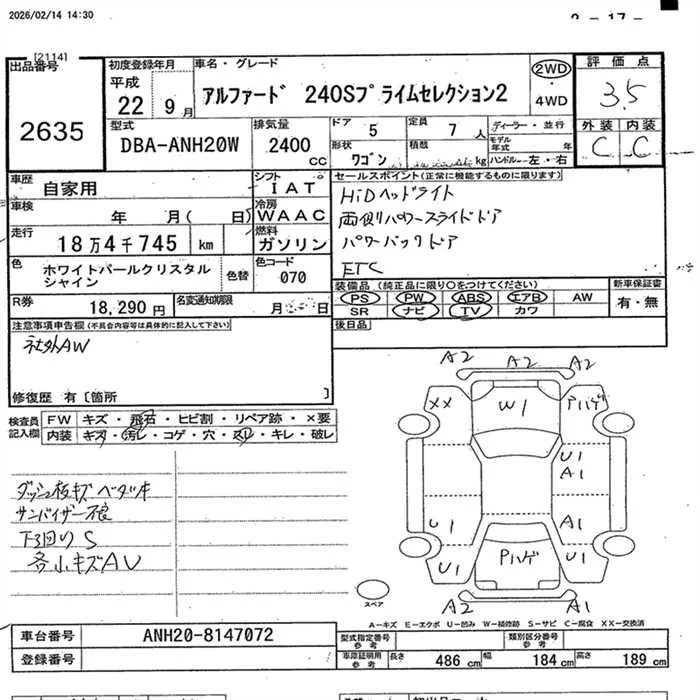 2026/02/14 14:30
[2114]
出品番号 初度登録年月 車名・グレード 評価点
2635
平成 22 9月
アルファード 240Sプライムセレクション2
2WD ・ 4WD
3.5
型式 排気量 ドア 5 定員 7人 ディーラー・並行 外装 内装
DBA-ANH20W 2400cc
形状 ワゴン 積載 kg モデル年式 年 ハンドル 左・右
C C
車歴 自家用 シフト IAT
セールスポイント(正常に機能するものに限ります)
車検 年 月( 日) 冷房 WAAC
HiDヘッドライト
両側パワースライドドア
走行 18万4千745 km 燃料 ガソリン
パワーバックドア
ETC
色 ホワイトパールクリスタルシャイン 色替 色コード 070
装備品(純正品に限り〇をつけてください) 新車保証書
PS PW ABS エアB AW 有・無
R券 18,290円 名変通知期限 月 日
SR ナビ TV カワ
注意事項申告欄(不具合内容等は具体的に記入して下さい) 後日品
社外AW
修復歴 有〔箇所 〕
検査員記入欄 FW キズ・飛石・ヒビ割・リペア跡・×要
内装 キズ・汚レ・コゲ・穴・スレ・キレ・破レ
サンバイザー不良
下回りS
各小キズAU
A2 A2 A2
XX W1 Pハゲ
U1
A1
U1 A1
U1 Pハゲ U1
A2 A1
スペア
A―キズ E―エクボ U―凹み W―補修跡 S―サビ C―腐食 XX―交換済
車台番号 ANH20-8147072
型式指定番号参考 類別区分番号参考
登録番号
車庫証明用参考 長さ 486cm 幅 184cm 高さ 189cm